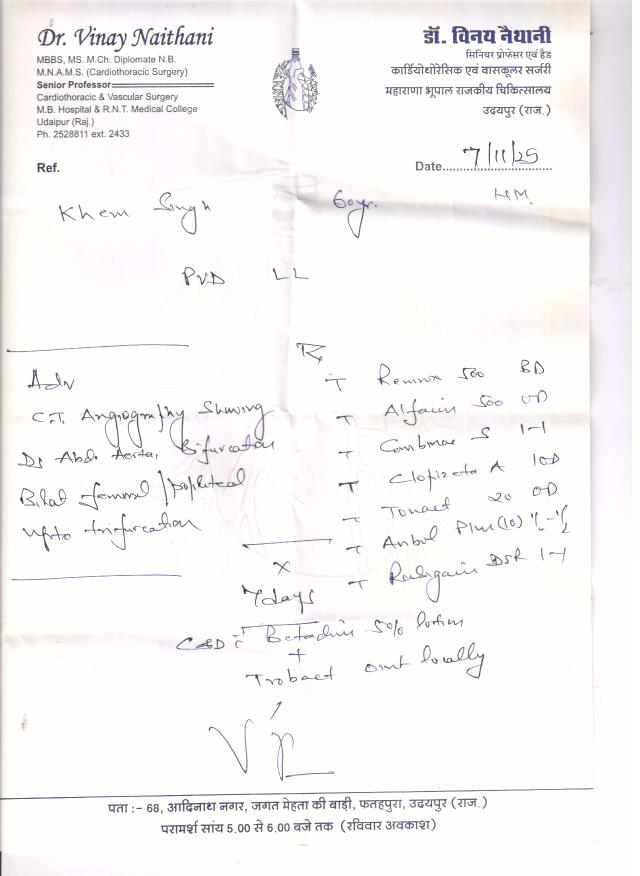 Dr. Vinay Naithani
MBBS, MS. M.Ch. Diplomate N.B.
M.N.A.M.S. (Cardiothoracic Surgery)
Senior Professor
Cardiothoracic & Vascular Surgery
M.B. Hospital & R.N.T. Medical College
Udaipur (Raj.)
Ph. 2528811 ext. 2433
डॉ. विनय नैथानी
सिनियर प्रोफेसर एवं हैड
कार्डियोथोरेसिक एवं वासकूलर सर्जरी
महाराणा भूपाल राजकीय चिकित्सालय
उदयपुर (राज.)
Ref.
Date 7/11/25
Khem Singh 60yr. HM.
PVD LL
Adv
C.T. Angiography Showing
Ds Abd. Aorta, Bifurcation
Bilat femoral / popliteal
upto trifurcation
Rx
T 500 BD
T 500 OD
T S 1-1
T Clopizeta A 1OD
T Tonact 20 OD
T Plus (10) ½-½
T DSR 1-1
x
7days
C&D c̄ Betadine 5% lotion
+
Trobact oint locally
पता :– 68, आदिनाथ नगर, जगत मेहता की बाड़ी, फतहपुरा, उदयपुर (राज.)
परामर्श सांय 5.00 से 6.00 बजे तक (रविवार अवकाश)